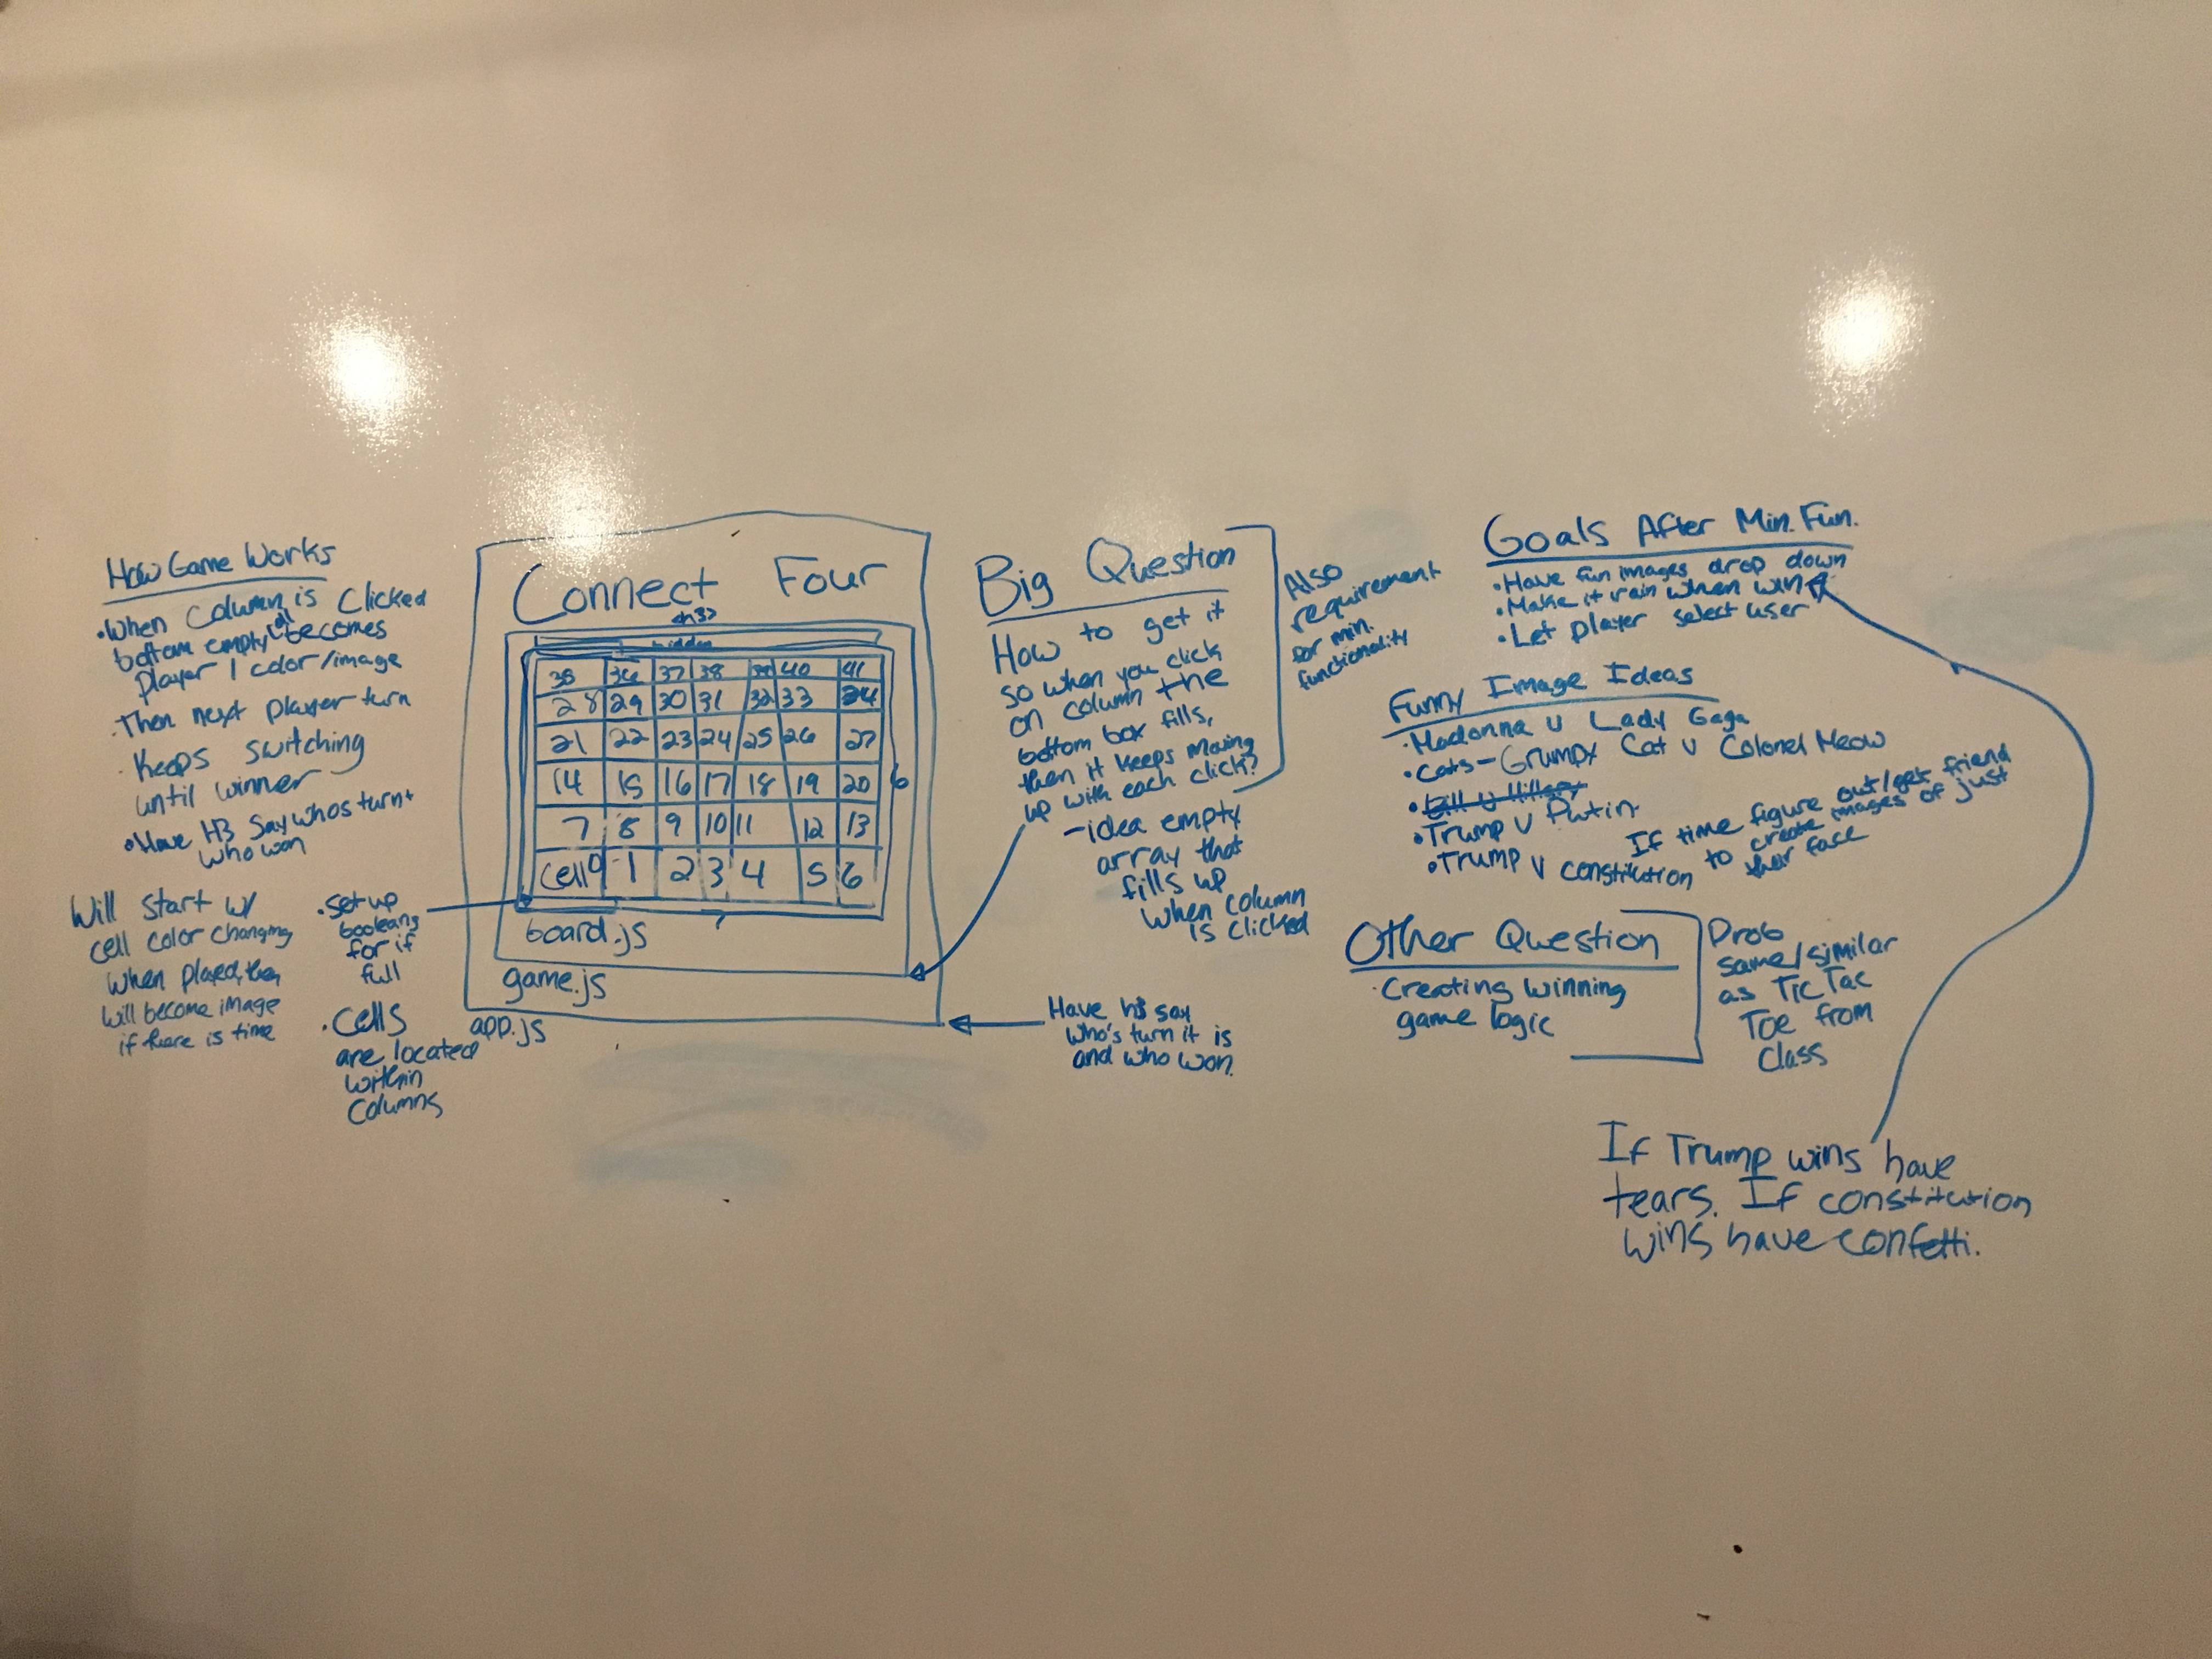 How Game Works
• When Column is Clicked
bottom empty cell becomes
player 1 color/image
• Then next player turn
• Keeps switching
until winner
• Have H3 say whos turn +
who won
Will start w/
cell color changing
when played, then
will become image
if there is time
• set up
booleans
for if
full
• Cells
are located
within
Columns
Connect Four
<h3>
hidden
35 36 37 38 39 40 41
28 29 30 31 32 33 34
21 22 23 24 25 26 27
14 15 16 17 18 19 20
7 8 9 10 11 12 13
Cell 0 1 2 3 4 5 6
6
7
board.js
game.js
app.js
Big Question
How to get it
so when you click
on column the
bottom box fills,
then it keeps moving
up with each click?
- idea empty
array that
fills up
when column
is clicked
Also
requirement
for min.
functionality
Have h3 say
who's turn it is
and who won.
Goals After Min. Fun.
• Have fun images drop down
• Make it rain when win
• Let player select user
Funny Image Ideas
• Madonna v Lady Gaga
• Cats - Grumpy Cat v Colonel Meow
• Bill v Hillary
• Trump v Putin
• Trump v constitution
If time figure out/get friend
to create images of just
their face
Other Question
• Creating winning
game logic
Prob
same/similar
as Tic Tac
Toe from
Class
If Trump wins have
tears. If constitution
wins have confetti.